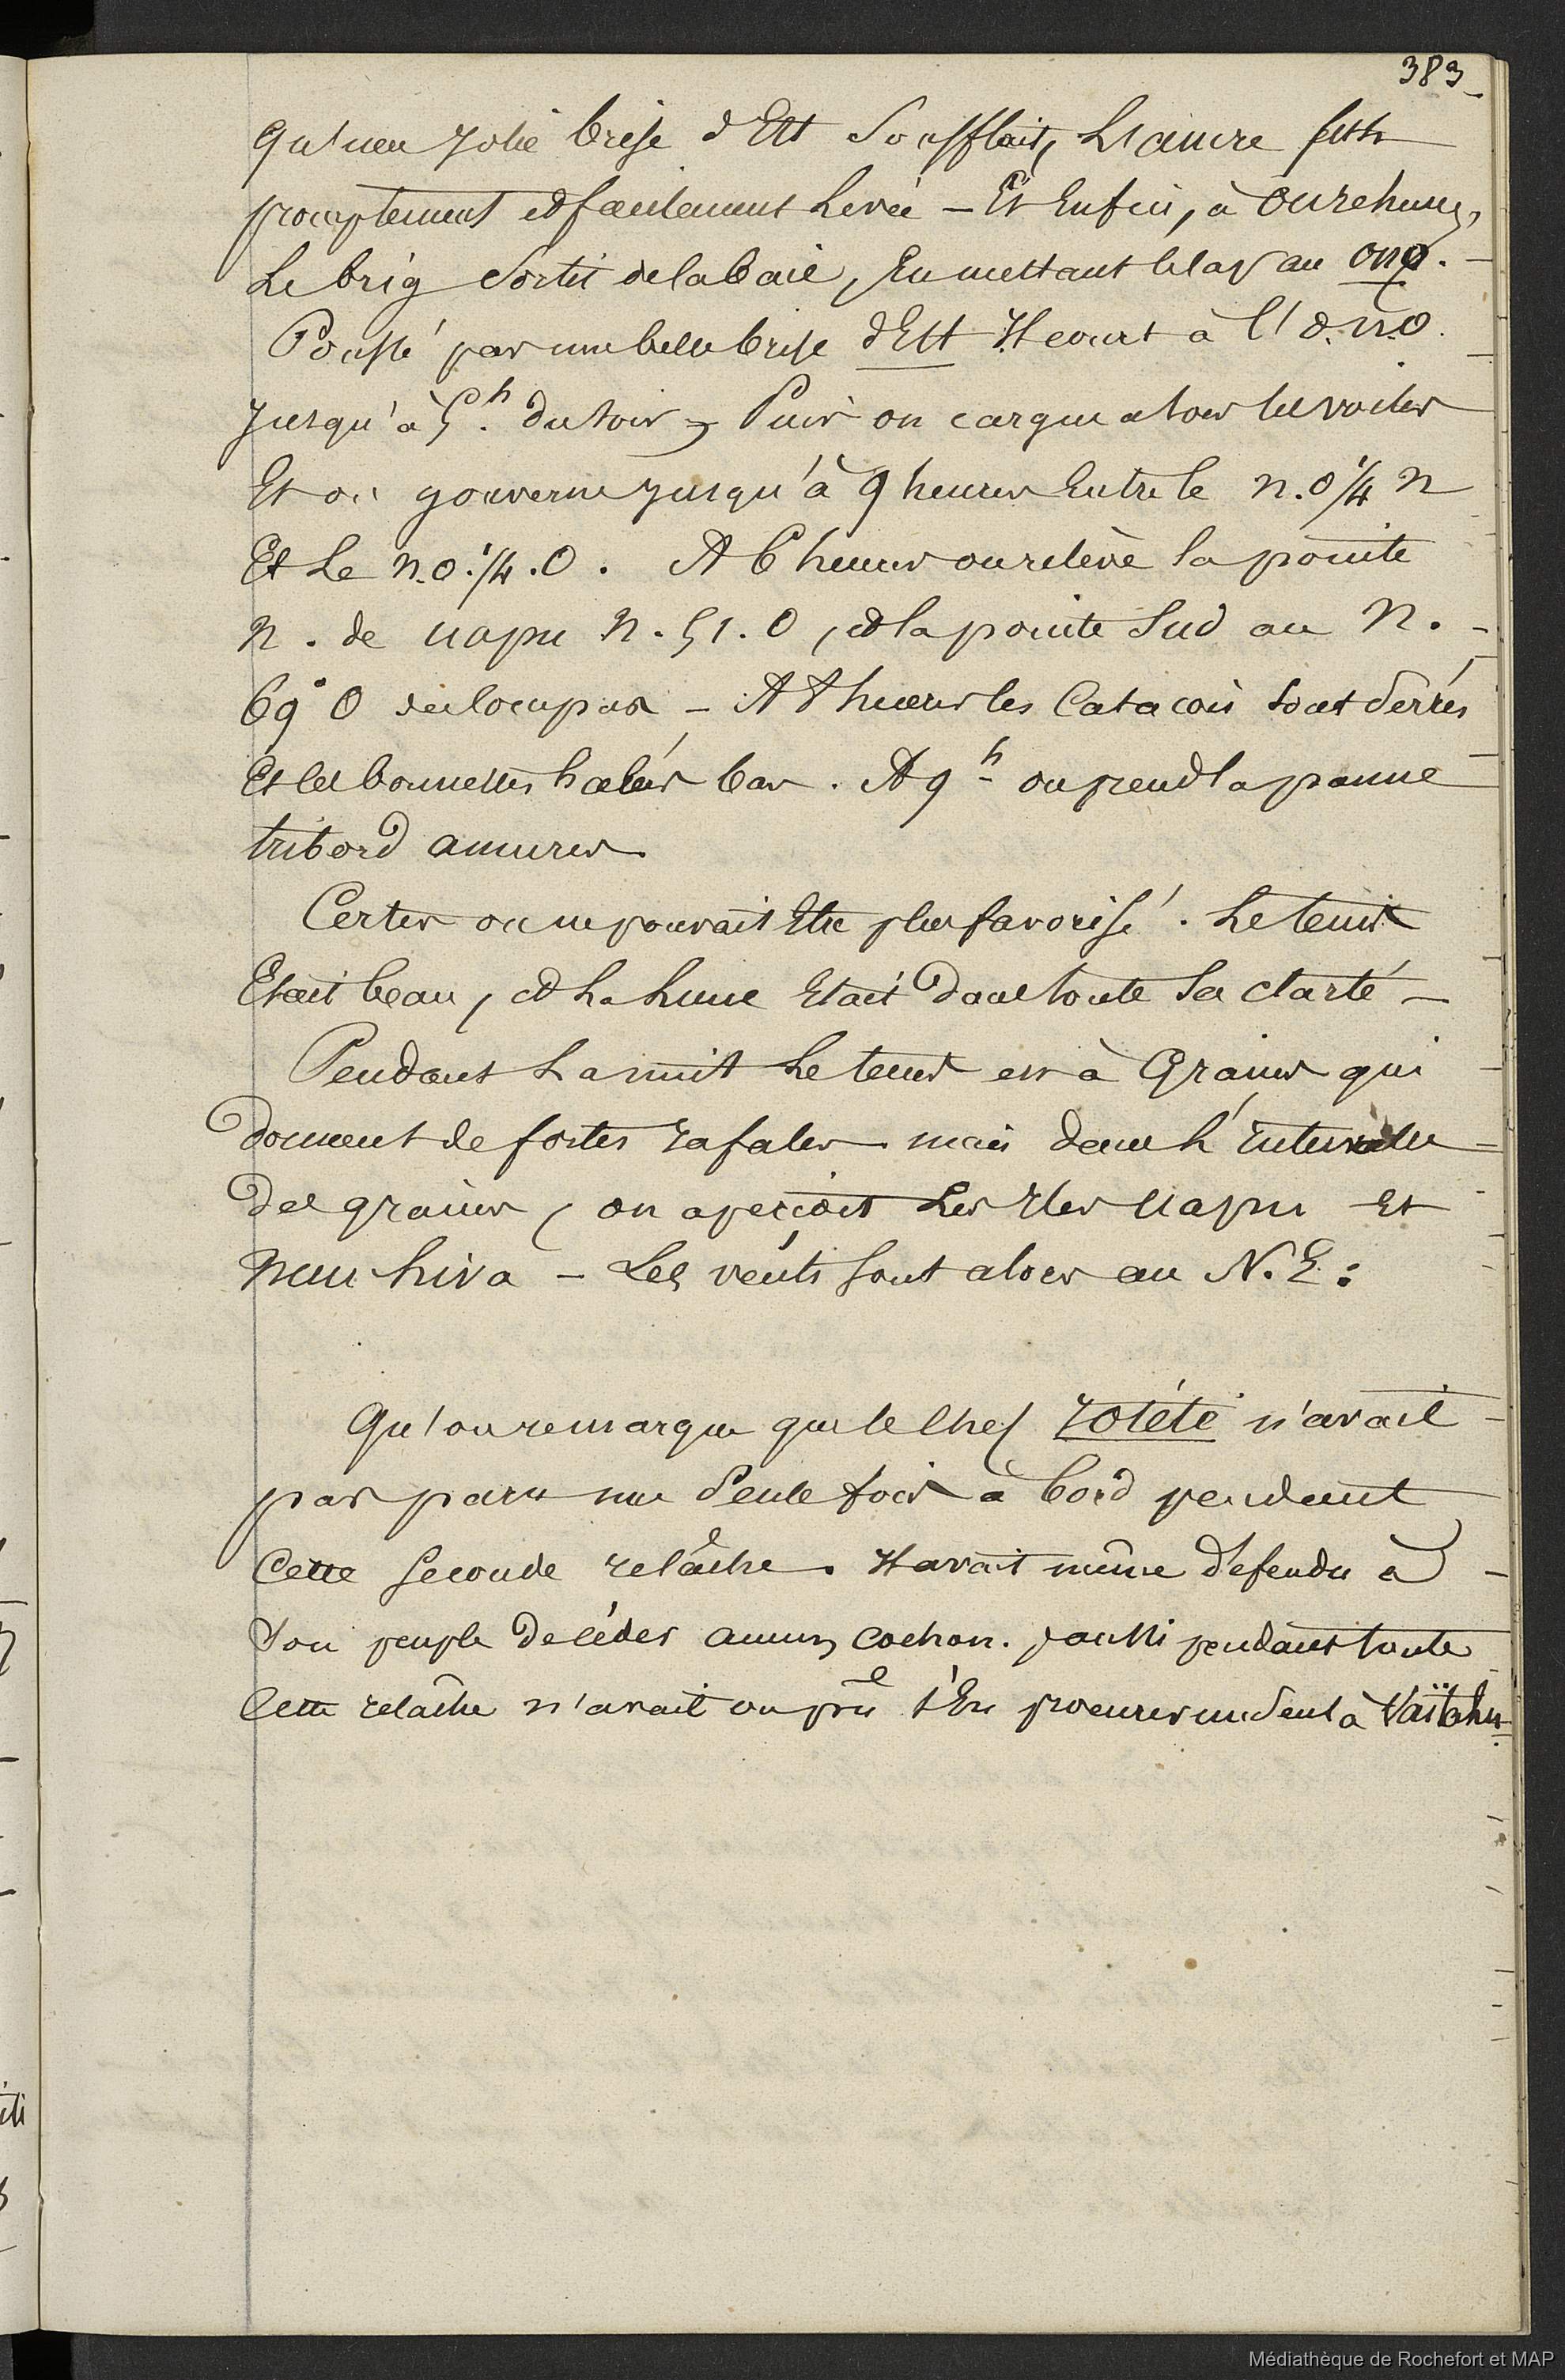 383
qu'une jolie brise d'Est soufflait, L'ancre fut
promptement et facilement Levée — Et Enfin, à onze heures,
Le brig sortit de la baie, En mettant le Cap au ono. —
Poussé par une belle brise d'Est Il court à l'O.N.O.
jusqu'à 5.h du soir, Puis on cargue alors les voiles
Et on gouverne jusqu'à 9 heures Entre le N.O 1/4 N
Et Le N.O. 1/4. O. A 6 heures on relève la pointe
N. de uapu N. 51. O, et la pointe Sud au N. -
69° O du compas — A 8 heures les Catacois sont serrés
Et les bonnettes halées bas. A 9 h on prend la panne
tribord amures
Certes on ne pouvait Etre plus favorisé. Le tems
Etait beau, et La Lune Etait dans toute sa clarté —
Pendant La nuit Le tems est à Grains qui
donnent de fortes rafales mais dans L'intervalle
des grains, on aperçoit Les Iles uapu Et
nuu-hiva — Les vents sont alors au N.E:
Qu'on remarque que le Chef Yotété n'avait
pas paru une seule fois à bord pendant
Cette seconde relâche. Il avait même défendu à
son peuple de céder aucun cochon. aussi pendant toute
Cette relâche n'avait on pu s'En procurer un seul à Vaïtahu
Médiathèque de Rochefort et MAP